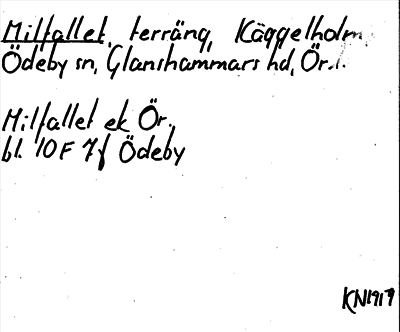 Milfallet, terräng, Käggelholm,
Ödeby sn, Glanshammars hd, Ör.l.
Milfallet ek Ör.,
bl. 10F 7f Ödeby
KN1917